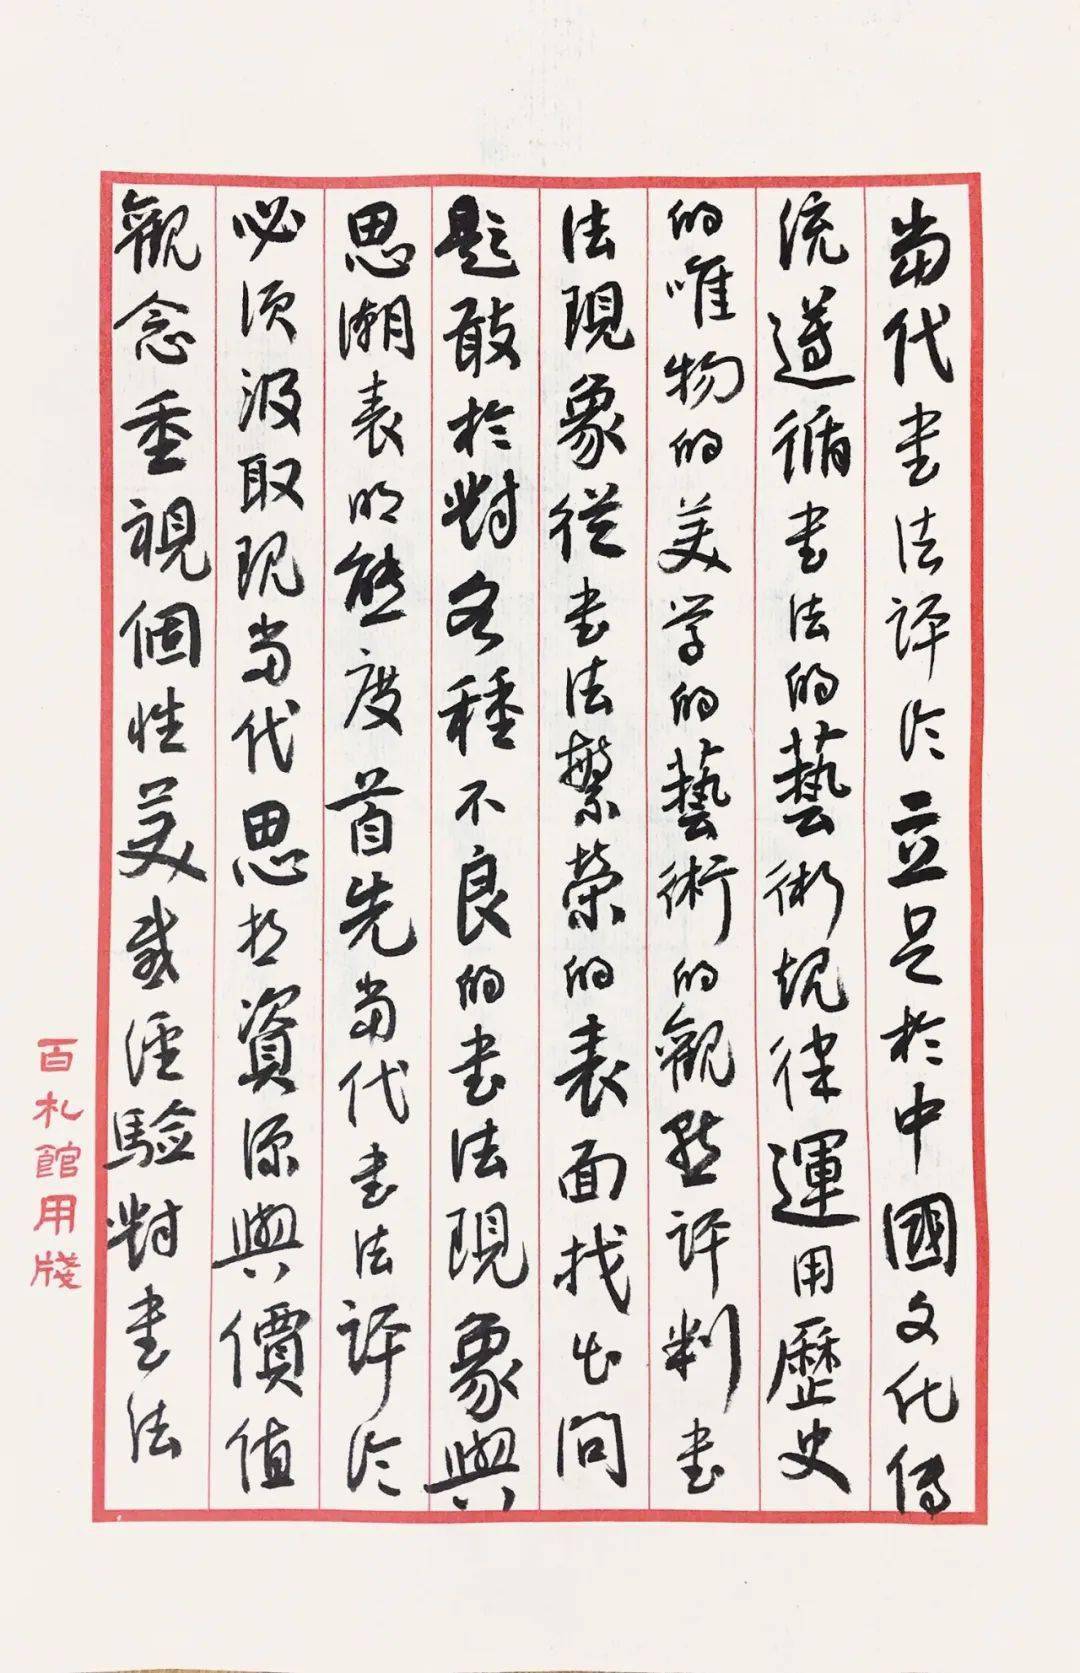 當代書法評論立足於中國文化傳
流遵循書法的藝術規律運用歷史
的唯物的美学的藝術的觀點評判書
法現象從書法繁榮的表面找出問
題敢於對各種不良的書法現象與
思潮表明態度首先當代書法評論
必须汲取現當代思想資源與價值
觀念重視個性美感經驗對書法
百札館用牋